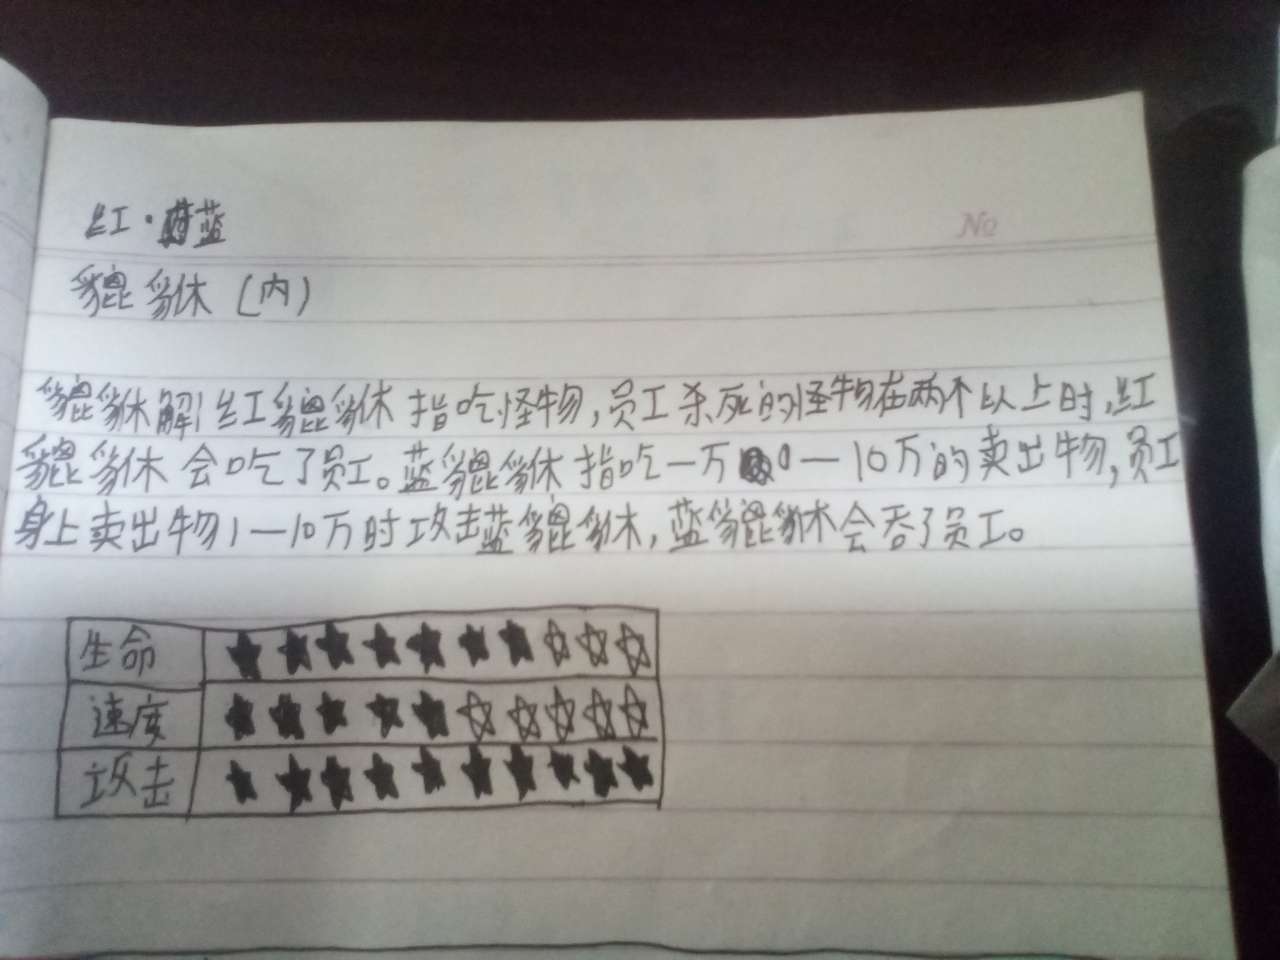 红·蓝
No
貔貅（内）
貔貅解）红貔貅指吃怪物，员工杀死的怪物在两个以上时，红
貔貅会吃了员工。蓝貔貅指吃一万 0—10万的卖出物，员工
身上卖出物1—10万时攻击蓝貔貅，蓝貔貅会吞了员工。
生命 ★★★★★★★☆☆☆
速度 ★★★★★☆☆☆☆☆
攻击 ★★★★★★★★★★